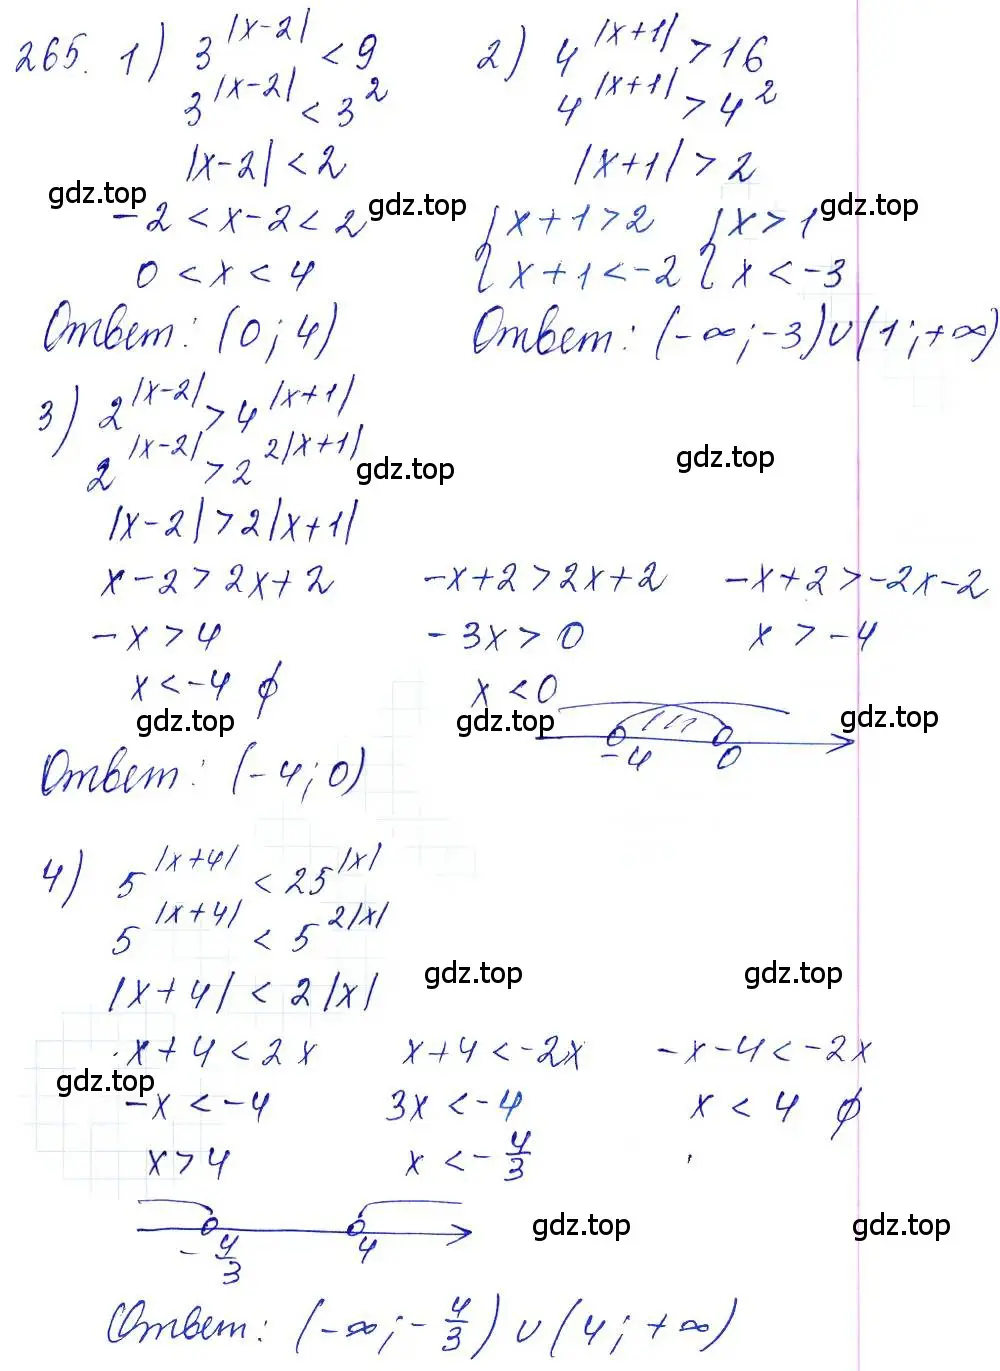 265. 1) 3^|x-2| < 9    2) 4^|x+1| > 16
3^|x-2| < 3^2    4^|x+1| > 4^2
|x-2| < 2    |x+1| > 2
gdz.top    gdz.top    gdz.top
-2 < x-2 < 2    { x+1 > 2    { x > 1
0 < x < 4    { x+1 < -2    { x < -3
Ответ: (0; 4)    Ответ: (-∞; -3) ∪ (1; +∞)
3) 2^|x-2| > 4^|x+1|
2^|x-2| > 2^2|x+1|
gdz.top    gdz.top
|x-2| > 2|x+1|
x-2 > 2x+2    -x+2 > 2x+2    -x+2 > -2x-2
-x > 4    -3x > 0    x > -4
x < -4 ∅    x < 0
gdz.top    gdz.top    gdz.top
-4    0
Ответ: (-4; 0)
4) 5^|x+4| < 25^|x|
5^|x+4| < 5^2|x|
gdz.top    gdz.top
|x+4| < 2|x|
x+4 < 2x    x+4 < -2x    -x-4 < -2x
gdz.top
-x < -4    3x < -4    x < 4 ∅
x > 4    x < -4/3
gdz.top    gdz.top
-4/3    4
Ответ: (-∞; -4/3) ∪ (4; +∞)